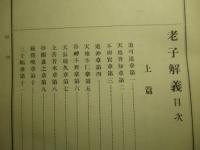 老子解義目次
上篇
道可道章第一
天地皆知章第二
不尚賢章第三
道沖章第四
天地不仁章第五
谷神不死章第六
天長地久章第七
上善若水章第八
持而盈之章第九
載營魄章第十
三十輻章第十一